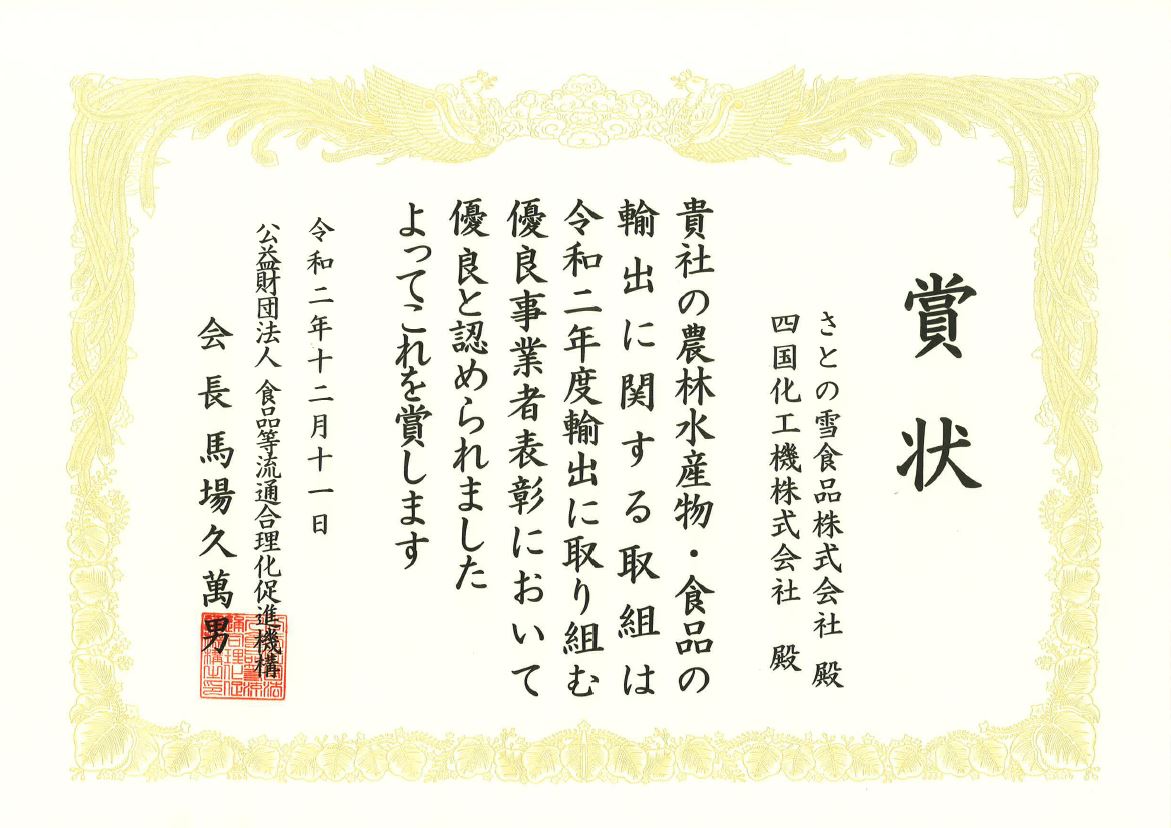 賞状
さとの雪食品株式会社 殿
四国化工機株式会社 殿
貴社の農林水産物・食品の
輸出に関する取組は
令和二年度輸出に取り組む
優良事業者表彰において
優良と認められました
よってこれを賞します
令和二年十二月十一日
公益財団法人 食品等流通合理化促進機構
会長 馬場久萬男